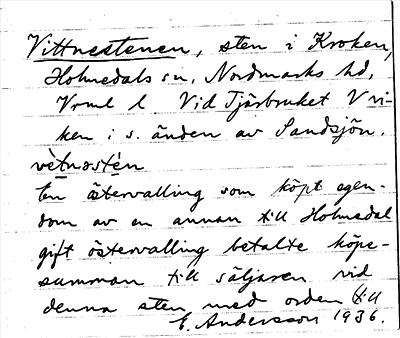 Vittnestenen, sten i Kroken,
Holmedals sn, Nordmarks hd,
Vrml l Vid Tjärbruket Vri-
ken i s. änden av Sandsjön.
vètnəstén
En östervalling som köpt egen-
dom av en annan till Holmedal
gift östervalling betalte köpe-
summan till säljaren vid
denna sten med orden (till
E. Andersson 1936.